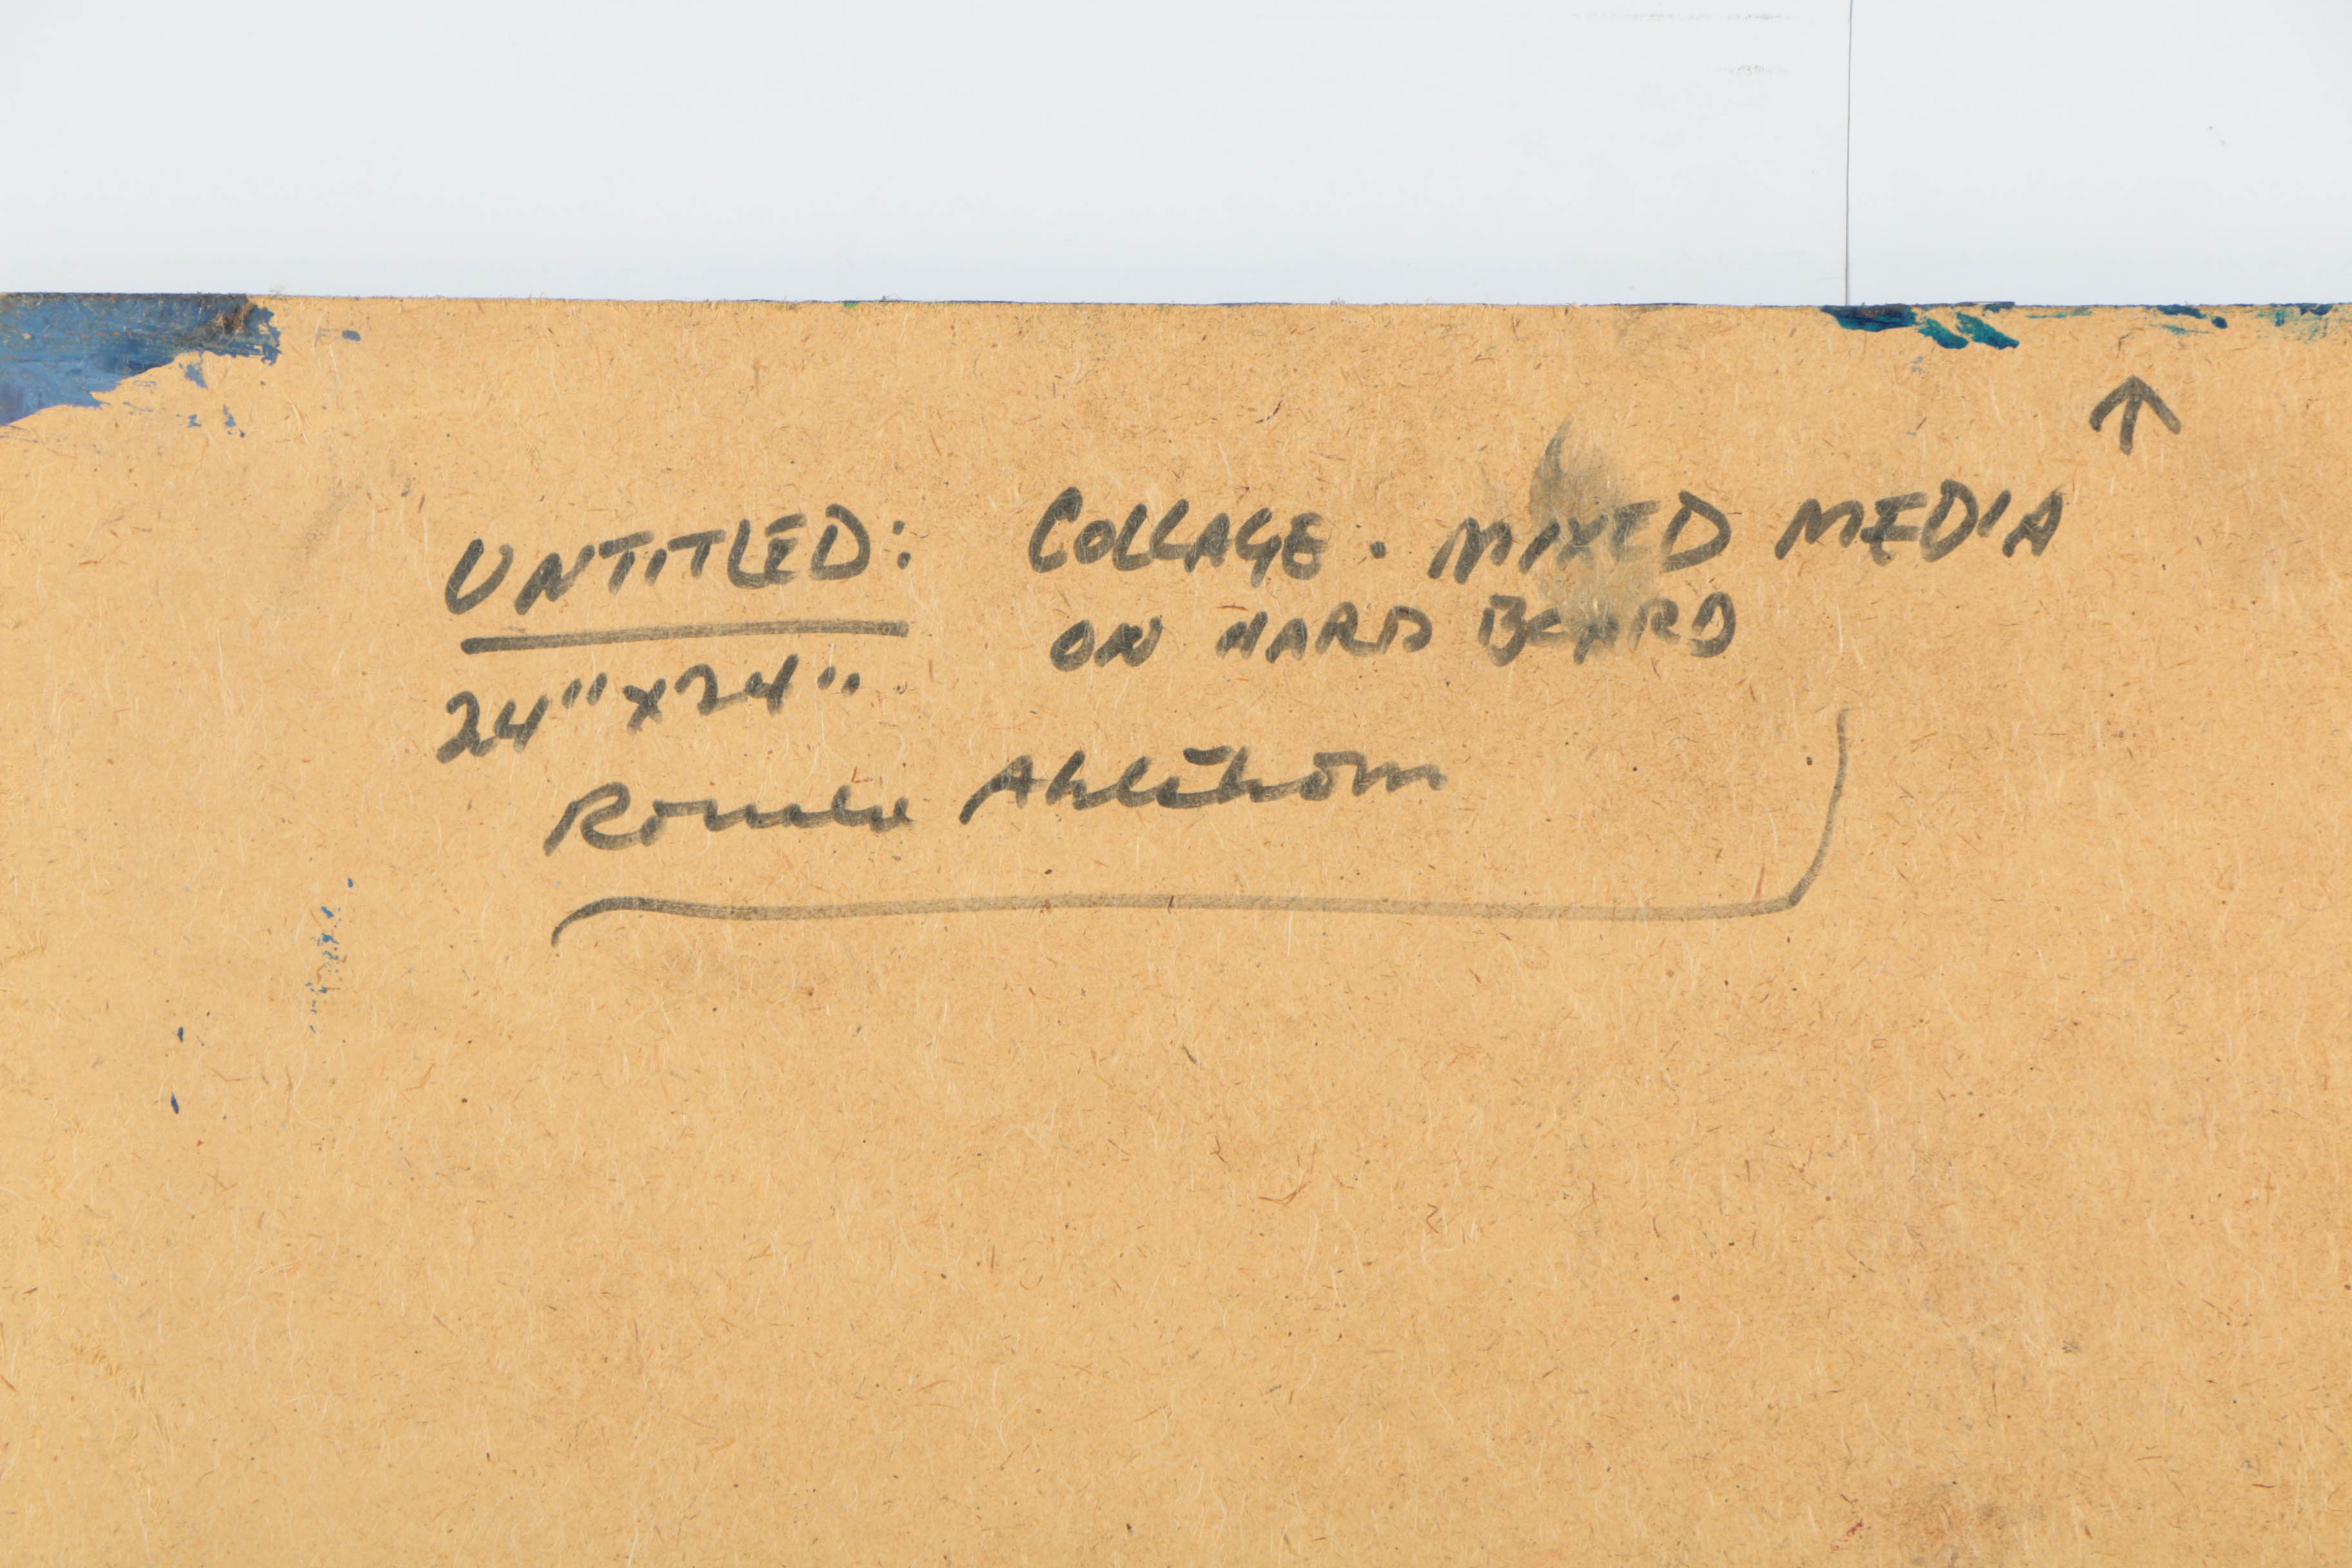 UNTITLED: COLLAGE. MIXED MEDIA
ON HARD BOARD
24" x 24"
Ronald Ahlström